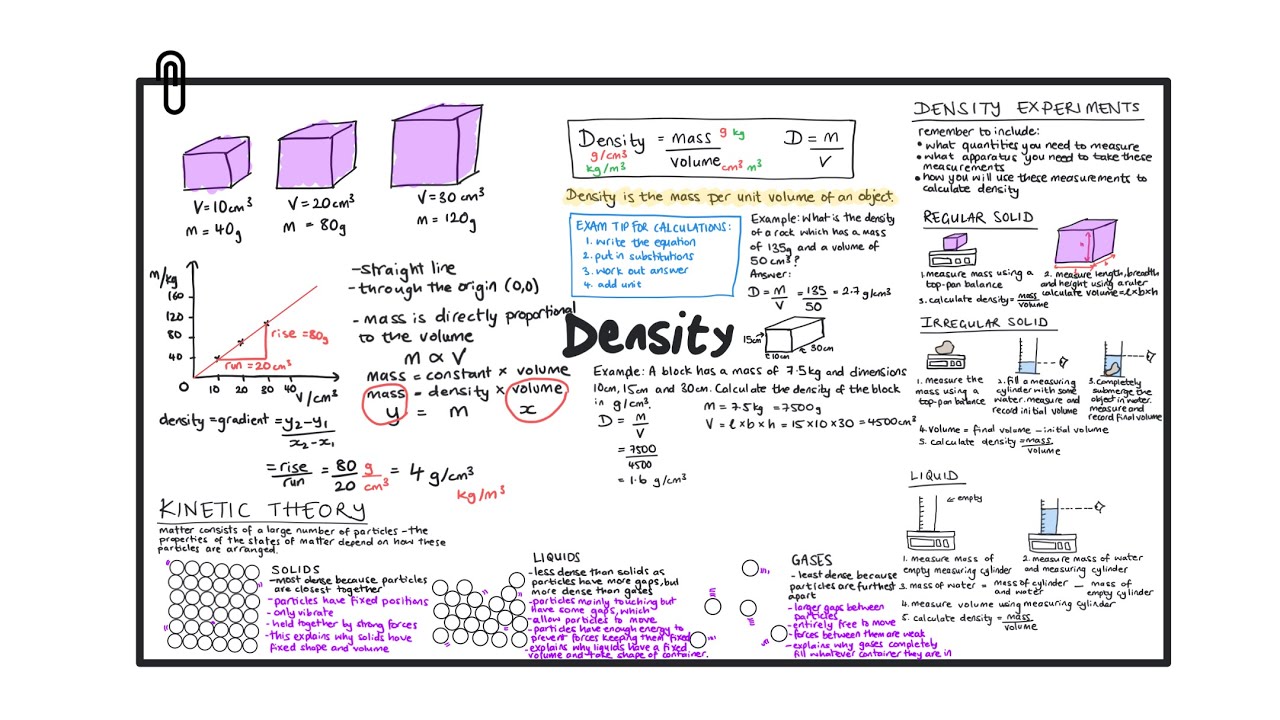 V=10cm³
m = 40g
V=20cm³
m = 80g
V=30cm³
m = 120g
m/kg
160
120
80
40
0
10 20 30 40
V/cm³
rise = 80g
run = 20cm³
-straight line
-through the origin (0,0)
- mass is directly proportional
to the volume
m ∝ V
mass = constant × volume
mass = density × volume
y = m x
density = gradient = y₂-y₁
x₂-x₁
= rise = 80 g = 4 g/cm³
run 20 cm³
kg/m³
Density = mass g kg
g/cm³ volume cm³ m³
kg/m³
D = m
V
Density is the mass per unit volume of an object.
EXAM TIP FOR CALCULATIONS:
1. write the equation
2. put in substitutions
3. work out answer
4. add unit
Example: What is the density
of a rock which has a mass
of 135g and a volume of
50 cm³?
Answer:
D = m = 135 = 2.7 g/cm³
V 50
Density
15cm
10cm
30cm
Example: A block has a mass of 7.5kg and dimensions
10cm, 15cm and 30cm. Calculate the density of the block
in g/cm³.
M = 7.5kg = 7500g
V = l × b × h = 15×10×30 = 4500cm³
D = M
V
= 7500
4500
= 1.6 g/cm³
DENSITY EXPERIMENTS
remember to include:
• what quantities you need to measure
• what apparatus you need to take these
measurements
• how you will use these measurements to
calculate density
REGULAR SOLID
1. measure mass using a
top-pan balance
h
2. measure length, breadth
and height using a ruler
calculate volume = l×b×h
3. calculate density = mass
volume
IRREGULAR SOLID
1. measure the
mass using a
top-pan balance
2. fill a measuring
cylinder with some
water. measure and
record initial volume
3. Completely
submerge the
object in water.
measure and
record final volume
4. volume = final volume - initial volume
5. calculate density = mass
volume
LIQUID
empty
1. measure mass of
empty measuring cylinder
2. measure mass of water
and measuring cylinder
3. mass of water = mass of cylinder - mass of
and water empty cylinder
4. measure volume using measuring cylinder
5. calculate density = mass
volume
KINETIC THEORY
matter consists of a large number of particles - the
properties of the states of matter depend on how these
particles are arranged.
SOLIDS
-most dense because particles
are closest together
-particles have fixed positions
-only vibrate
-held together by strong forces
-this explains why solids have
fixed shape and volume
LIQUIDS
-less dense than solids as
particles have more gaps, but
more dense than gases
-particles mainly touching but
have some gaps, which
-allow particles to move
-particles have enough energy to
prevent forces keeping them fixed
-explains why liquids have a fixed
volume and take shape of container.
GASES
- least dense because
particles are furthest
apart
- larger gaps between
particles
- entirely free to move
- forces between them are weak
- explains why gases completely
fill whatever container they are in